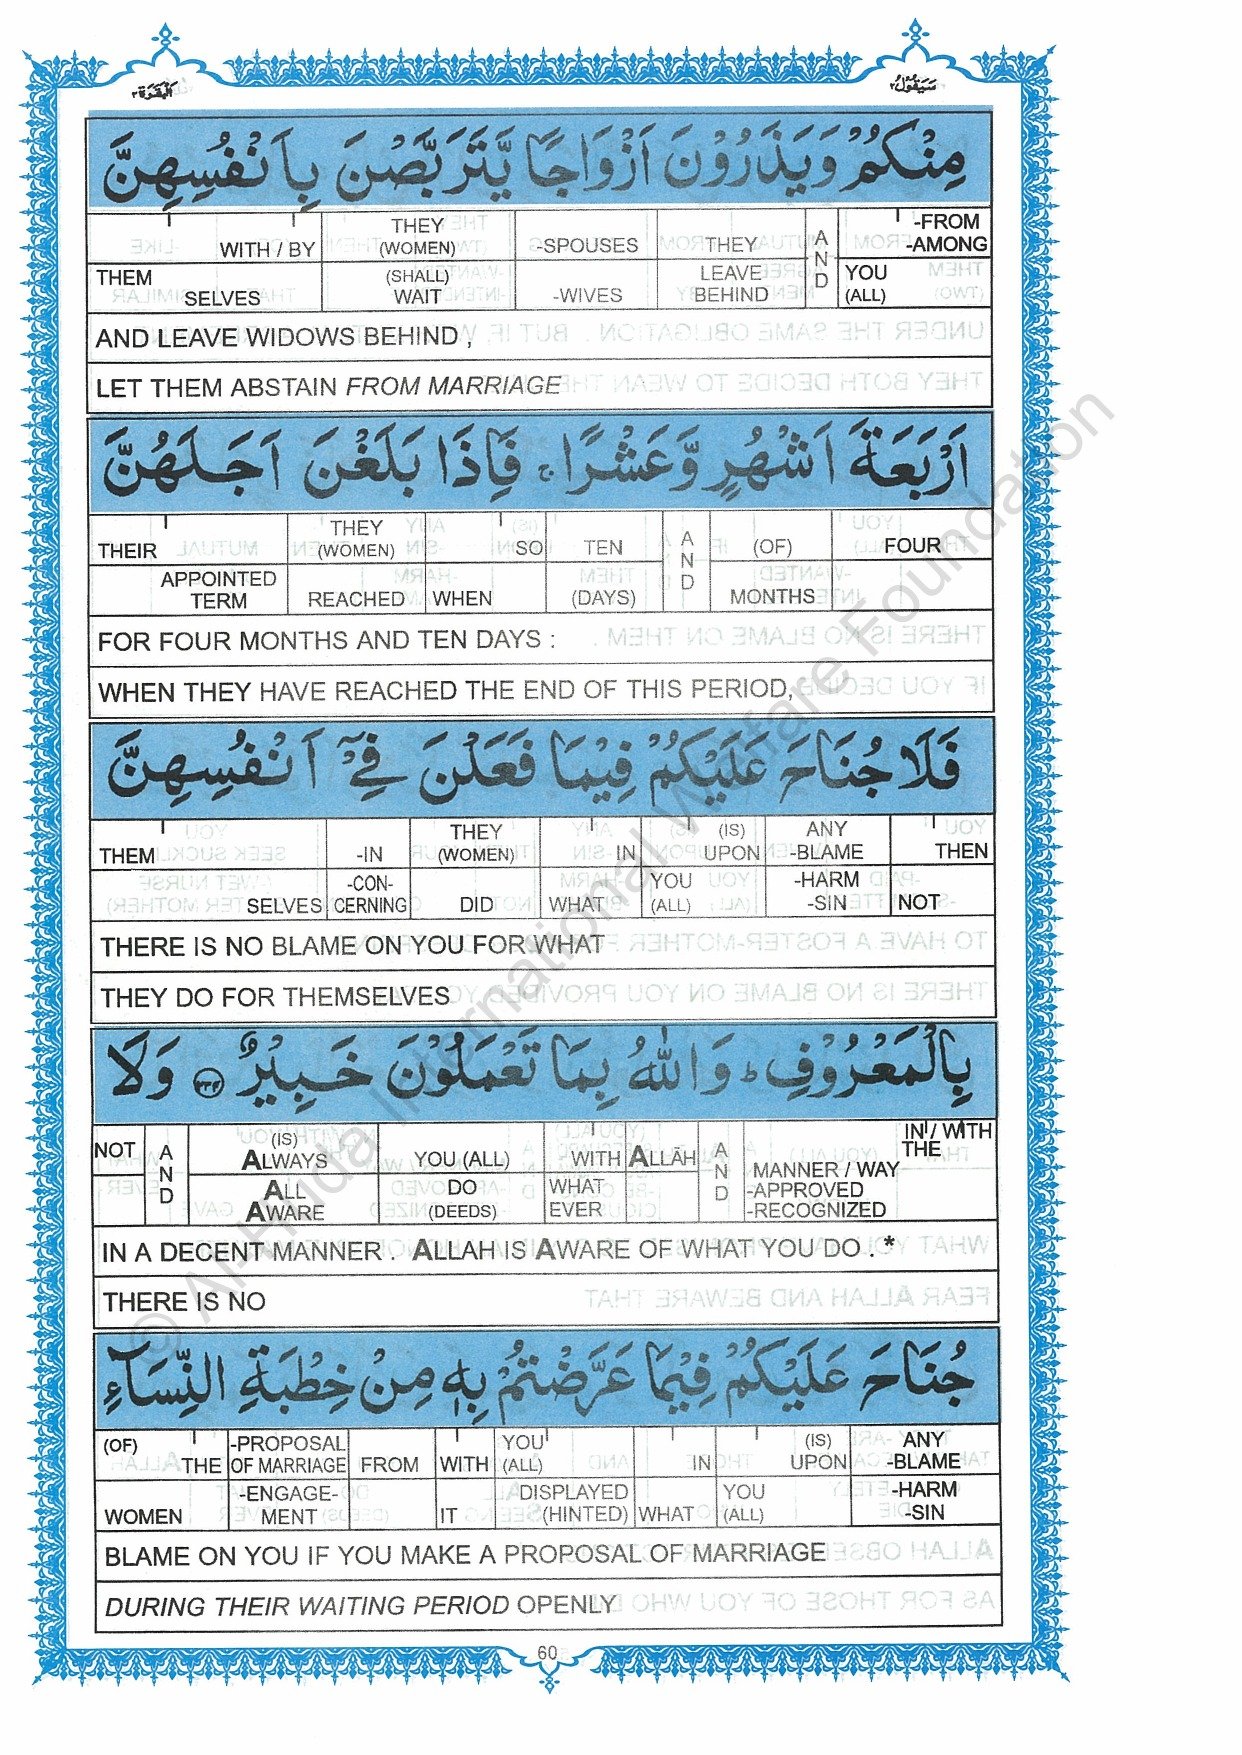 البقرة ٢
سيقول ٢
مِنْكُمْ وَيَذَرُوْنَ اَزْوَاجًا يَّتَرَبَّصْنَ بِاَنْفُسِهِنَّ
WITH / BY THEY (WOMEN) -SPOUSES THEY AND -FROM -AMONG
THEM SELVES (SHALL) WAIT -WIVES LEAVE BEHIND YOU (ALL)
AND LEAVE WIDOWS BEHIND ,
LET THEM ABSTAIN FROM MARRIAGE
اَرْبَعَةَ اَشْهُرٍ وَّعَشْرًا ۚ فَاِذَا بَلَغْنَ اَجَلَهُنَّ
THEIR THEY (WOMEN) SO TEN AND (OF) FOUR
APPOINTED TERM REACHED WHEN (DAYS) MONTHS
FOR FOUR MONTHS AND TEN DAYS :
WHEN THEY HAVE REACHED THE END OF THIS PERIOD,
فَلَا جُنَاحَ عَلَيْكُمْ فِيْمَا فَعَلْنَ فِيْٓ اَنْفُسِهِنَّ
THEM -IN THEY (WOMEN) IN (IS) UPON ANY -BLAME THEN
SELVES -CON- CERNING DID WHAT YOU (ALL) -HARM -SIN NOT
THERE IS NO BLAME ON YOU FOR WHAT
THEY DO FOR THEMSELVES
بِالْمَعْرُوْفِ ؕ وَاللّٰهُ بِمَا تَعْمَلُوْنَ خَبِيْرٌ ۝٢٣٤ وَلَا
NOT AND (IS) ALWAYS YOU (ALL) WITH ALLĀH AND MANNER / WAY IN / WITH THE
ALL AWARE DO (DEEDS) WHAT EVER -APPROVED -RECOGNIZED
IN A DECENT MANNER . ALLAH IS AWARE OF WHAT YOU DO . *
THERE IS NO
جُنَاحَ عَلَيْكُمْ فِيْمَا عَرَّضْتُمْ بِهٖ مِنْ خِطْبَةِ النِّسَآءِ
(OF) THE -PROPOSAL OF MARRIAGE FROM WITH YOU (ALL) IN (IS) UPON ANY -BLAME
WOMEN -ENGAGE- MENT IT DISPLAYED (HINTED) WHAT YOU (ALL) -HARM -SIN
BLAME ON YOU IF YOU MAKE A PROPOSAL OF MARRIAGE
DURING THEIR WAITING PERIOD OPENLY
60
© Al-Huda International Welfare Foundation